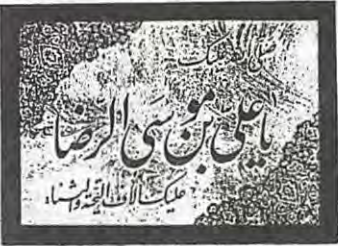 صلی الله علیک
یا علی بن موسی الرضا
علیک آلاف التحیة والثناء